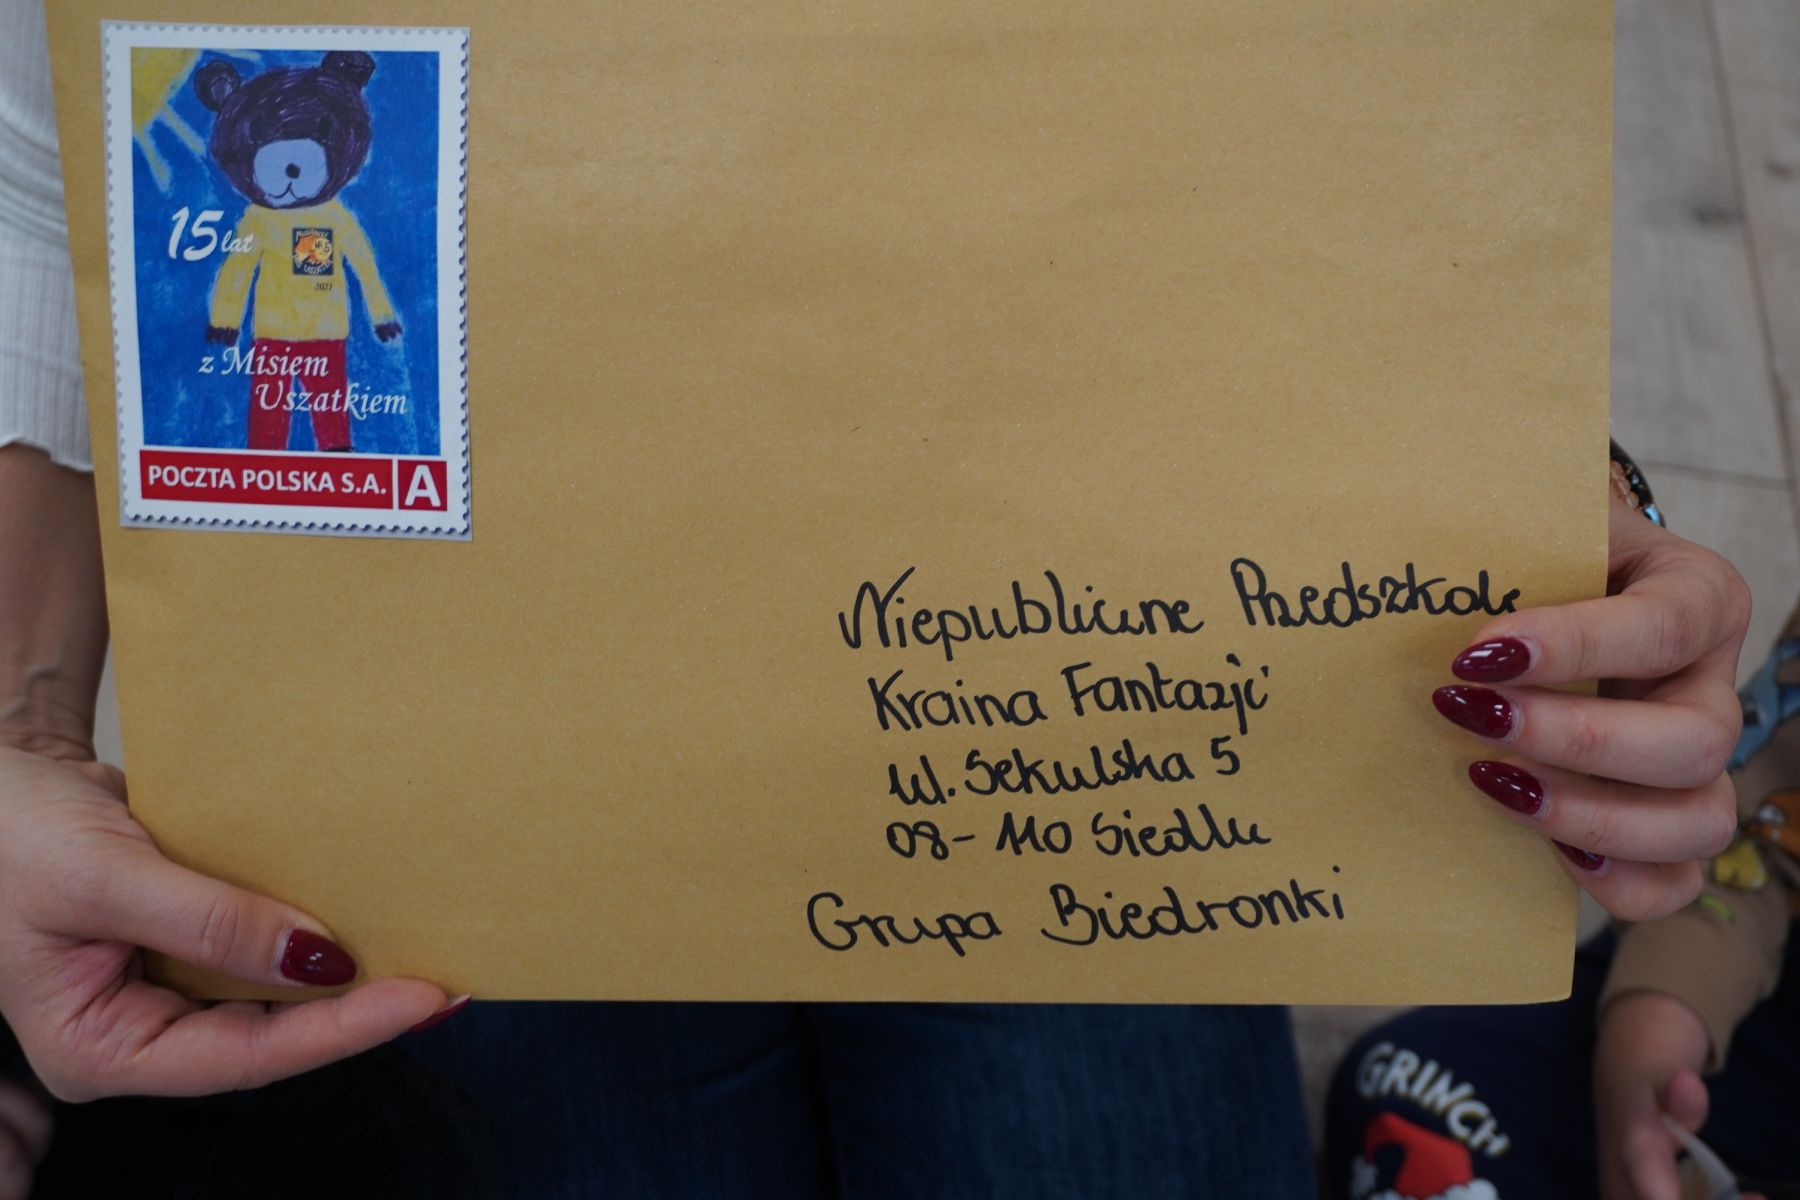 15 lat
2021
z Misiem
Uszatkiem
POCZTA POLSKA S.A. A
Niepubliczne Przedszkole
Kraina Fantazji
ul. Sekulska 5
08-110 Siedlce
Grupa Biedronki
GRINCH